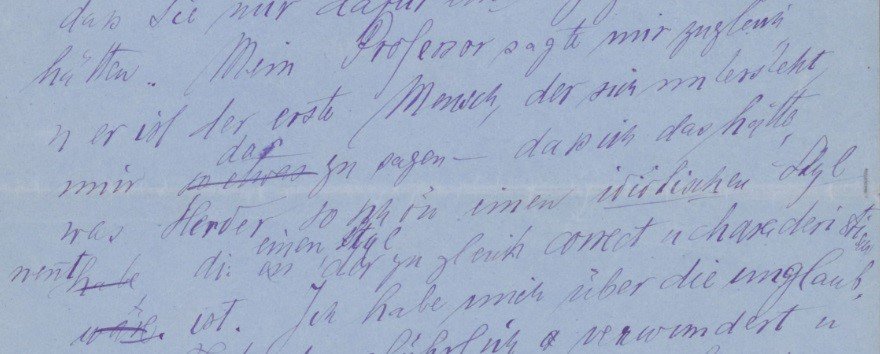 das Sie nur dafür
hätten. Mein Professor sagte mir zugleich
u er ist der erste Mensch, der sich untersteht,
mir so etwas das zu sagen – dass ich das hätte,
was Herder so schön einen idiotischen Styl
nennt habe die einen Styl der zugleich correct u charakteristisch
wäre. ist. Ich habe mich über die unglaub-
verwundert u